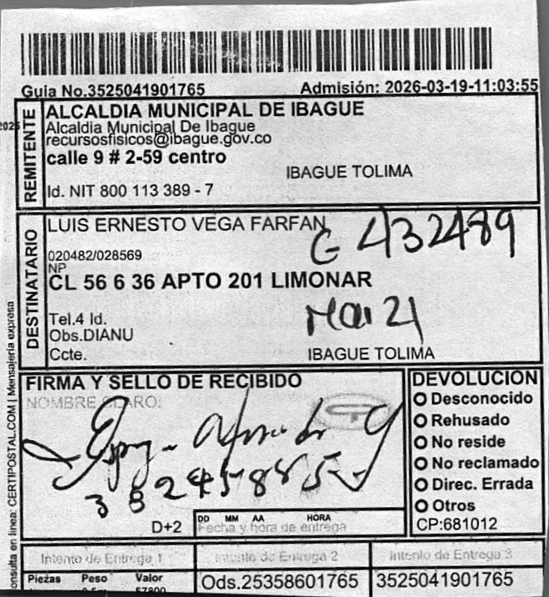 Guia No.3525041901765 Admisión: 2026-03-19-11:03:55
REMITENTE
ALCALDIA MUNICIPAL DE IBAGUE
Alcaldia Municipal De Ibague
recursosfisicos@ibague.gov.co
calle 9 # 2-59 centro
IBAGUE TOLIMA
Id. NIT 800 113 389 - 7
DESTINATARIO
LUIS ERNESTO VEGA FARFAN
G 432489
020482/028569
NP
CL 56 6 36 APTO 201 LIMONAR
Tel.4 Id.
Obs.DIANU
Ccte.
IBAGUE TOLIMA
FIRMA Y SELLO DE RECIBIDO
NOMBRE CLARO:
D+2
DD MM AA HORA
Fecha y hora de entrega
DEVOLUCION
Desconocido
Rehusado
No reside
No reclamado
Direc. Errada
Otros
CP:681012
Intento de Entrega 1 Intento de Entrega 2 Intento de Entrega 3
Piezas Peso Valor
Ods.25358601765 3525041901765
onsulta en linea: CERTIPOSTAL.COM | Mensajeria expresa